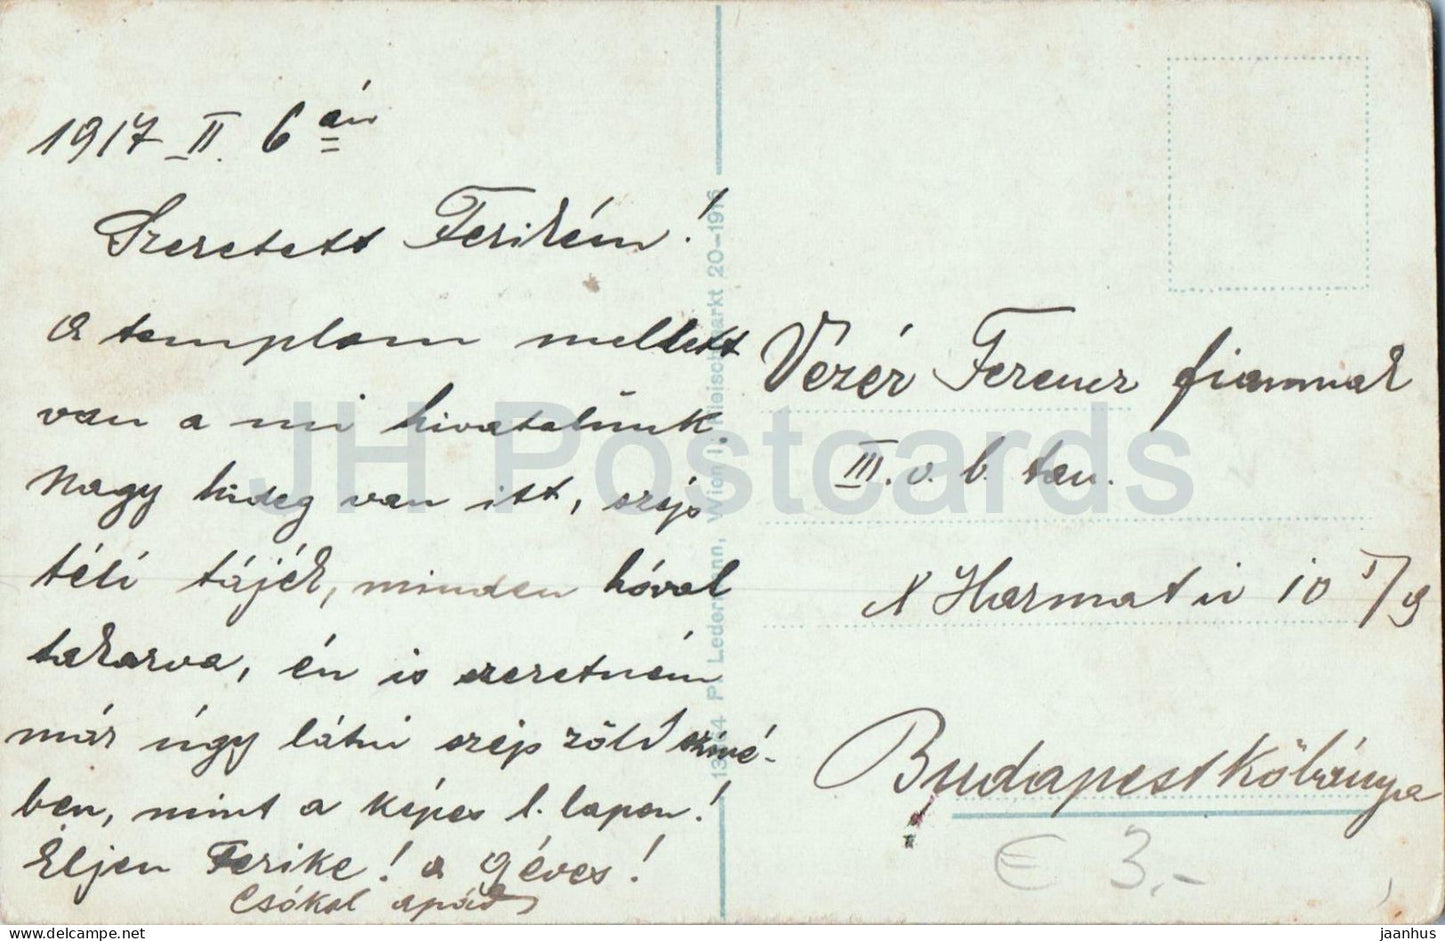 1917 II. 6 án
Szeretett Ferikém!
A templom mellett
van a mi hivatalunk.
Nagy hideg van itt, szép
téli tájék, minden hóval
takarva, én is szeretném
már úgy látni szép zöld színé-
ben, mint a képes l. lapon!
Éljen Ferike! a 9 éves!
Csókol apád
Vezér Ferencz fiamnak
III. o. b. tan.
X Harmat u 10 I/9
Budapest Kőbánya
€ 3.-
Wien I, Fleischmarkt 20-1916
JH Postcards
delcampe.net
jaanhus